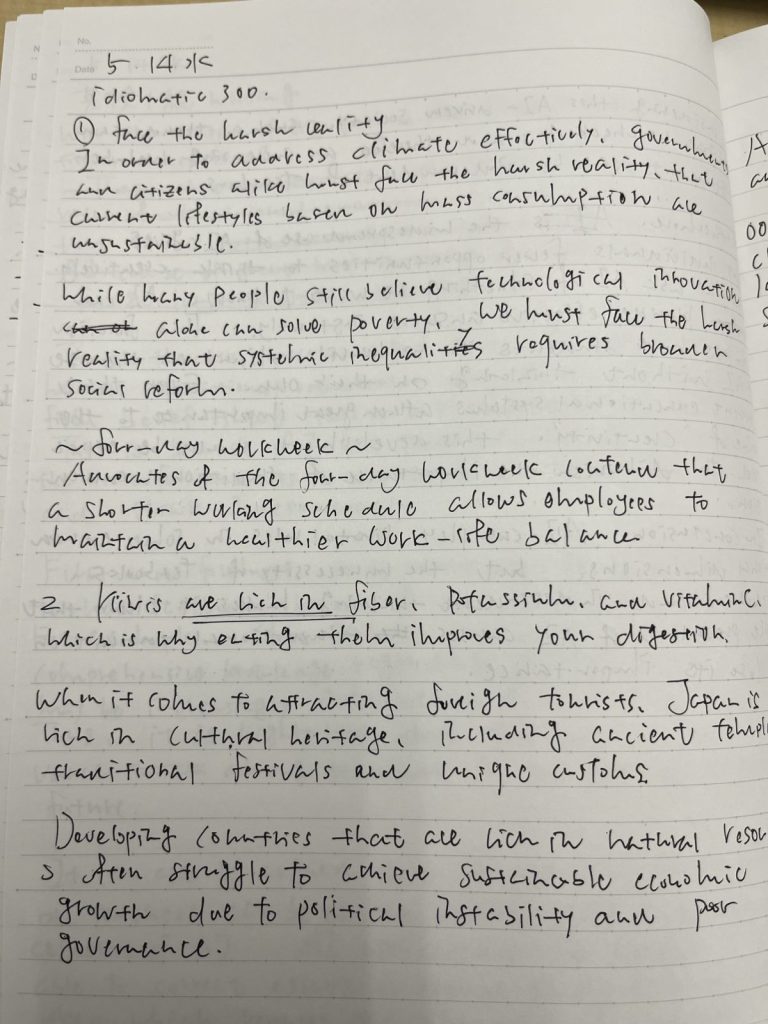 No.
Date 5. 14 水
idiomatic 300.
① face the harsh reality
In order to address climate effectively, governments
and citizens alike must face the harsh reality, that
current lifestyles based on mass consumption are
unsustainable.
While many people still believe technological innovation
alone can solve poverty, we must face the harsh
reality that systemic inequality requires broader
social reform.
~ four-day workweek ~
Advocates of the four-day workweek contend that
a shorter working schedule allows employees to
maintain a healthier work-life balance.
2 Kiwis are rich in fiber, potassium, and vitamin C,
which is why eating them improves your digestion.
When it comes to attracting foreign tourists, Japan is
rich in cultural heritage, including ancient temple
traditional festivals and unique customs.
Developing countries that are rich in natural resou
s often struggle to achieve sustainable economic
growth due to political instability and poor
governance.